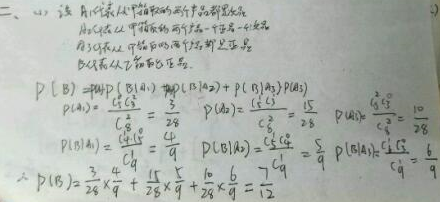 二、(1) 设 A₁代表从甲箱取的两个产品都是次品
A₂代表从甲箱取的两个产品一个正品一个次品
A₃代表从甲箱取的两个产品都是正品
B代表从乙箱取出正品.
P(B)=P(A₁)P(B|A₁)+P(B|A₂)+P(B|A₃)P(A₃)
P(A₁)=C₅⁰C₃²/C₈²=3/28 P(A₂)=C₅¹C₃¹/C₈²=15/28 P(A₃)=C₅²C₃⁰/C₈²=10/28
P(B|A₁)=C₄¹C₅⁰/C₉¹=4/9 P(B|A₂)=C₅¹C₄⁰/C₉¹=5/9 P(B|A₃)=C₆¹C₃⁰/C₉¹=6/9
∴ P(B)=3/28×4/9+15/28×5/9+10/28×6/9=7/12